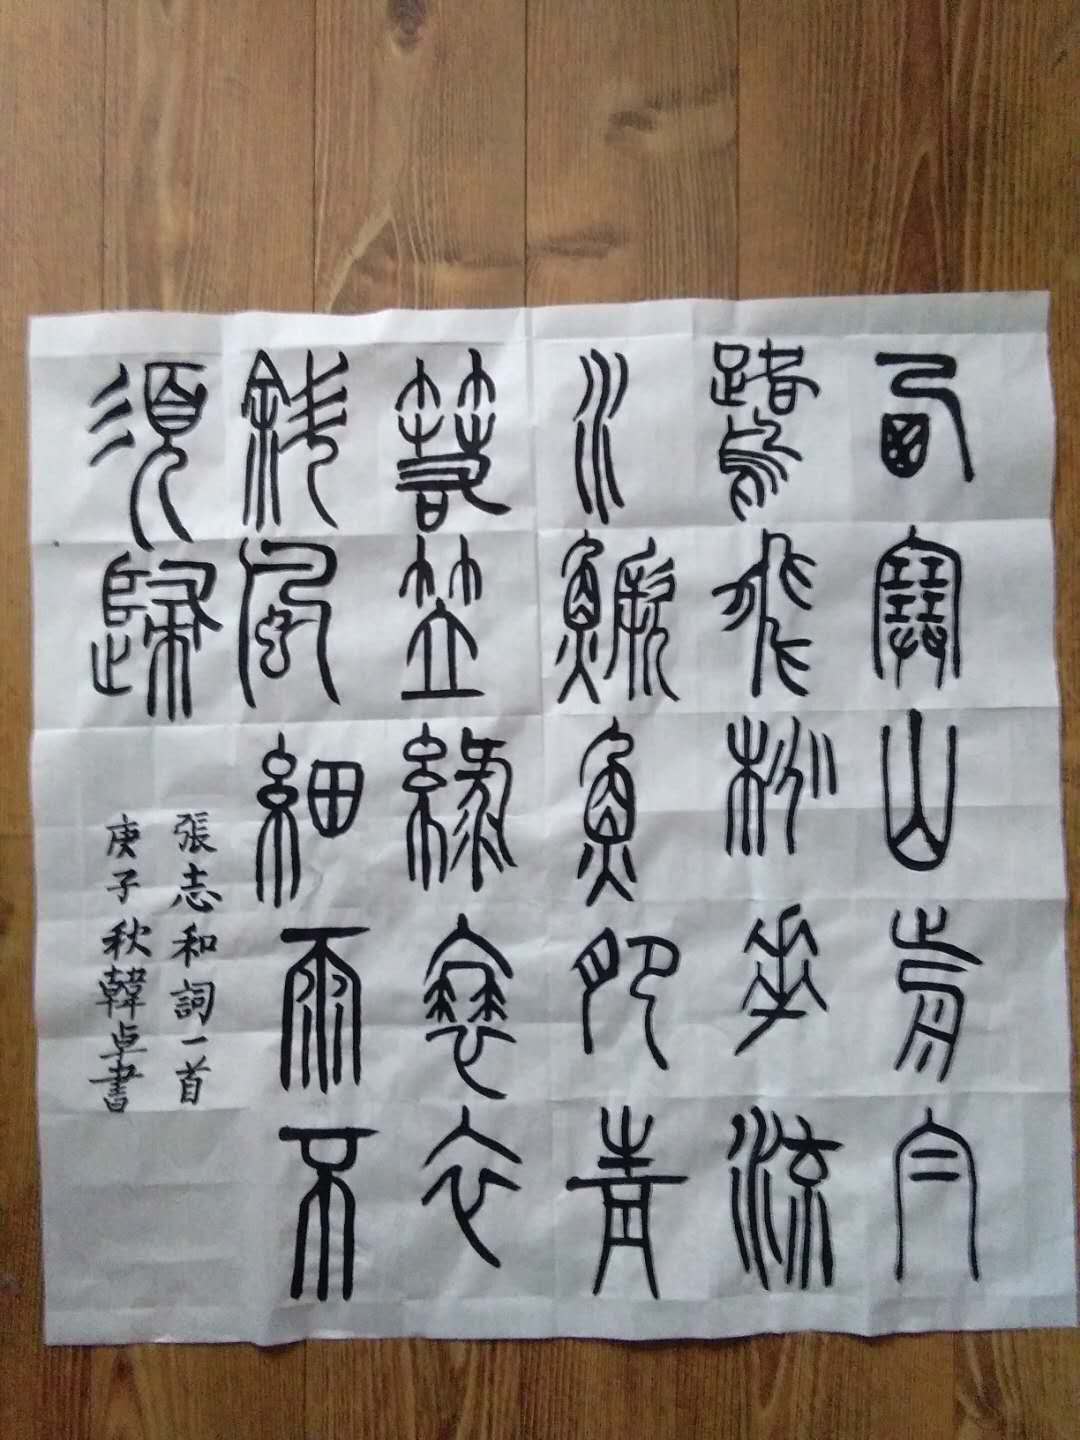 西塞山前白
鷺飛桃花流
水鱖魚肥青
箬笠綠蓑衣
斜風細雨不
須歸
張志和詞一首
庚子秋韓卓書